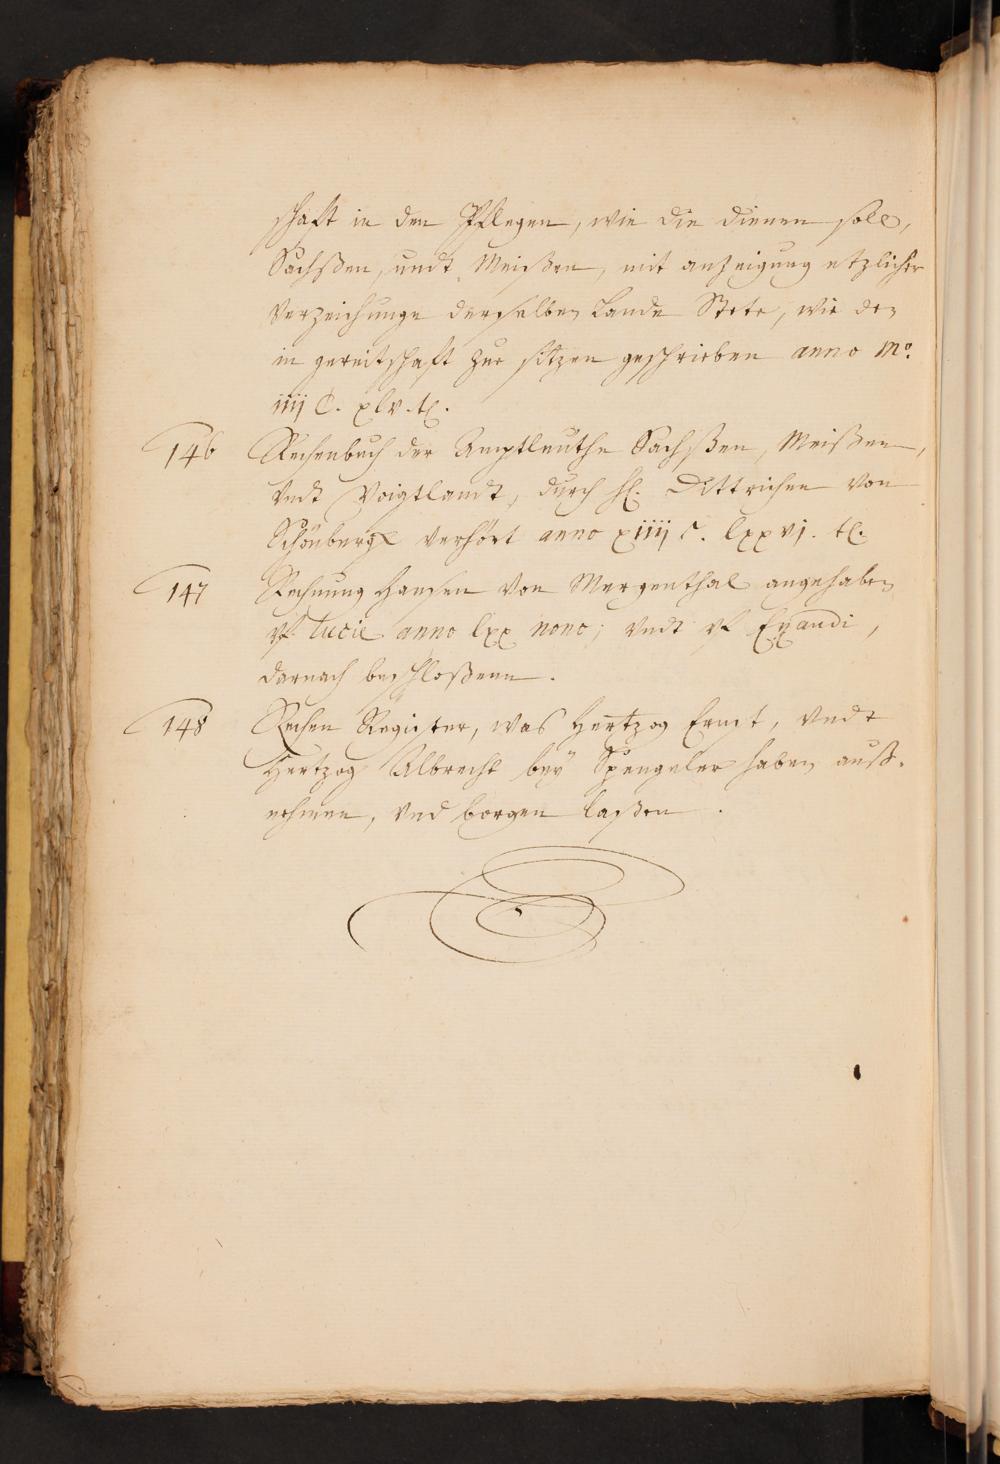 schafft in den Pflegen, wie die dienen solle,
Sachßen, undt Meißen, mit anzeigung etzlicher
verzeichunge derselben Lande Stete, wie der
in gereitschafft zue sitzen geschrieben anno Mo.
iiij C. xlv. tc.
146 Rechenbuch der Amptleuthe Sachßen, Meißen,
Undt Voigtlandt, durch H. Dittrichen von
Schönbergk verhört anno xiiij C. lxxvj. tc.
147 Rechnung Hansen von Mergenthal angehaben
vf Lucie anno lxx nono; undt vf
darnach beschloßenn.
148 Rechen Register, was Hertzog Ernst, undt
Hertzog Albrecht bey Spengeler haben auß-
nehmen, und borgen laßen.